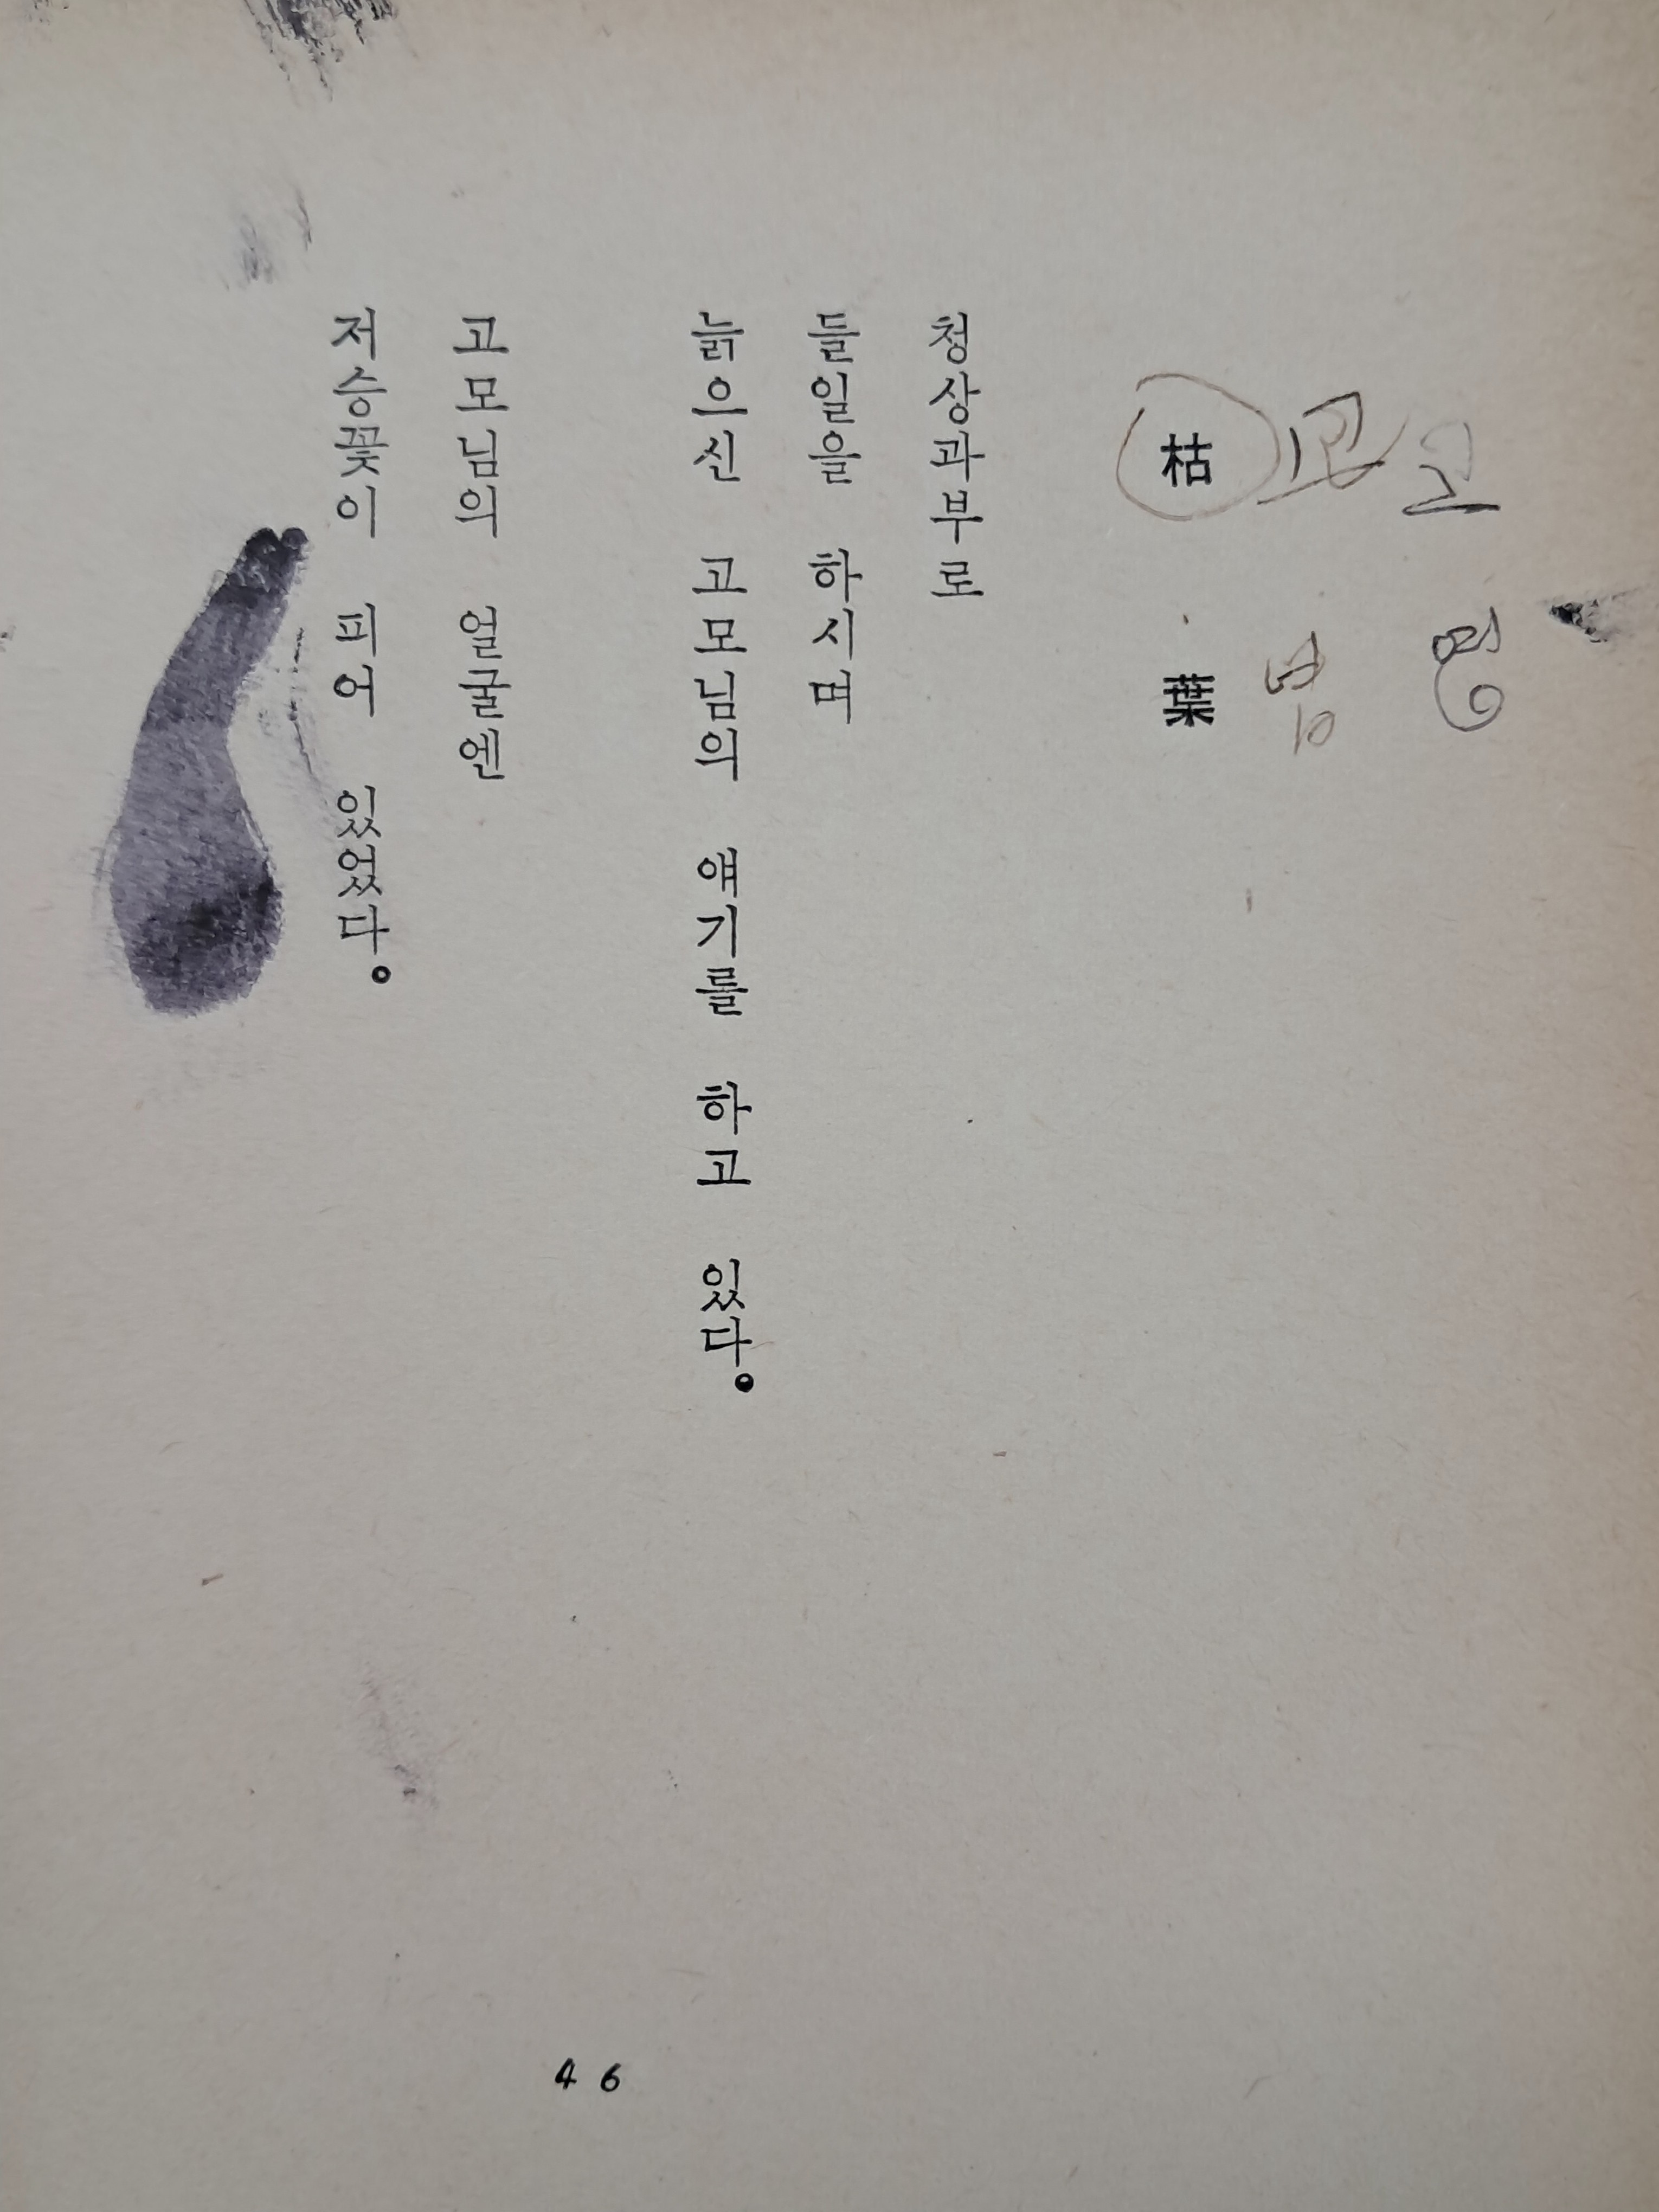 고 엽
枯 葉
청상과부로
들일을 하시며
늙으신 고모님의 얘기를 하고 있다。
고모님의 얼굴엔
저승꽃이 피어 있었다。
46